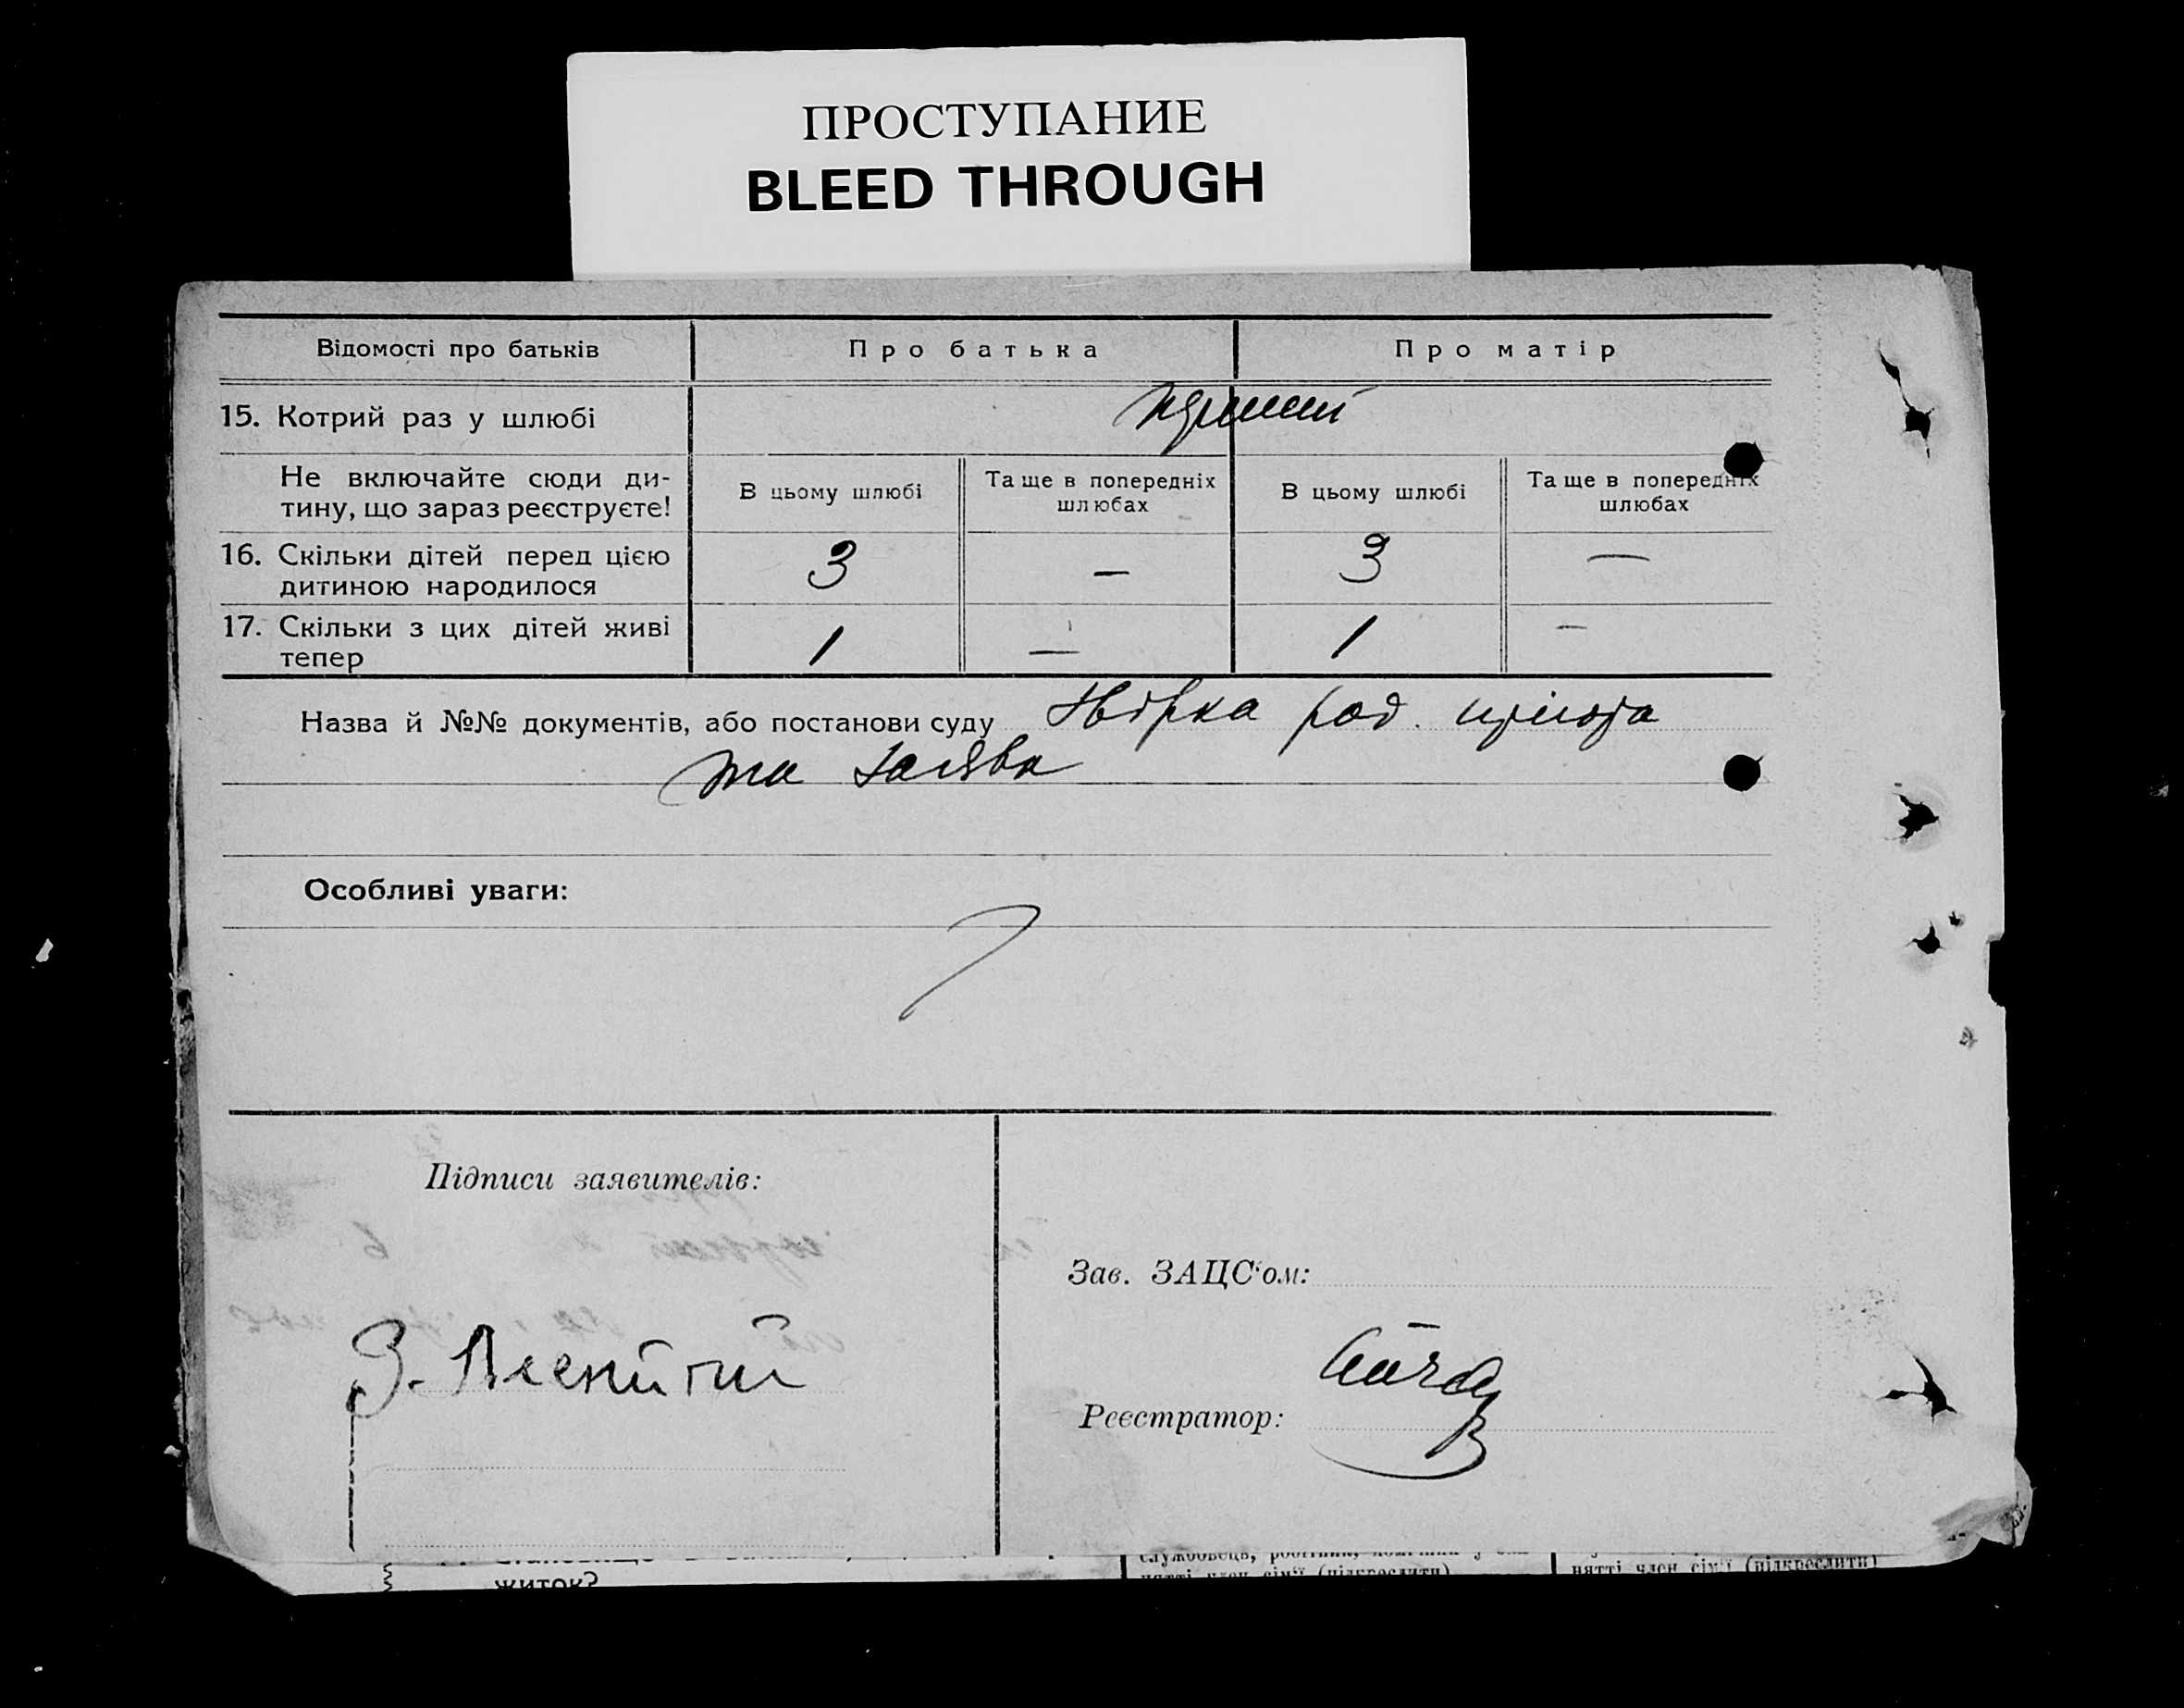 ПРОСТУПАНИЕ
BLEED THROUGH
Відомості про батьків
Про батька
Про матір
15. Котрий раз у шлюбі
перший
Не включайте сюди ди-
тину, що зараз реєструєте!
В цьому шлюбі
Та ще в попередніх
шлюбах
В цьому шлюбі
Та ще в попередніх
шлюбах
16. Скільки дітей перед цією
дитиною народилося
3
—
3
—
17. Скільки з цих дітей живі
тепер
1
—
1
—
Назва й №№ документів, або постанови суду
род.
та заява
Особливі уваги:
Підписи заявителів:
Зав. ЗАЦС'ом:
З.
Реєстратор:
житок?
службовець, робітник,
нятті член сім'ї (підкреслити)
нятті член сім'ї (підкреслити)